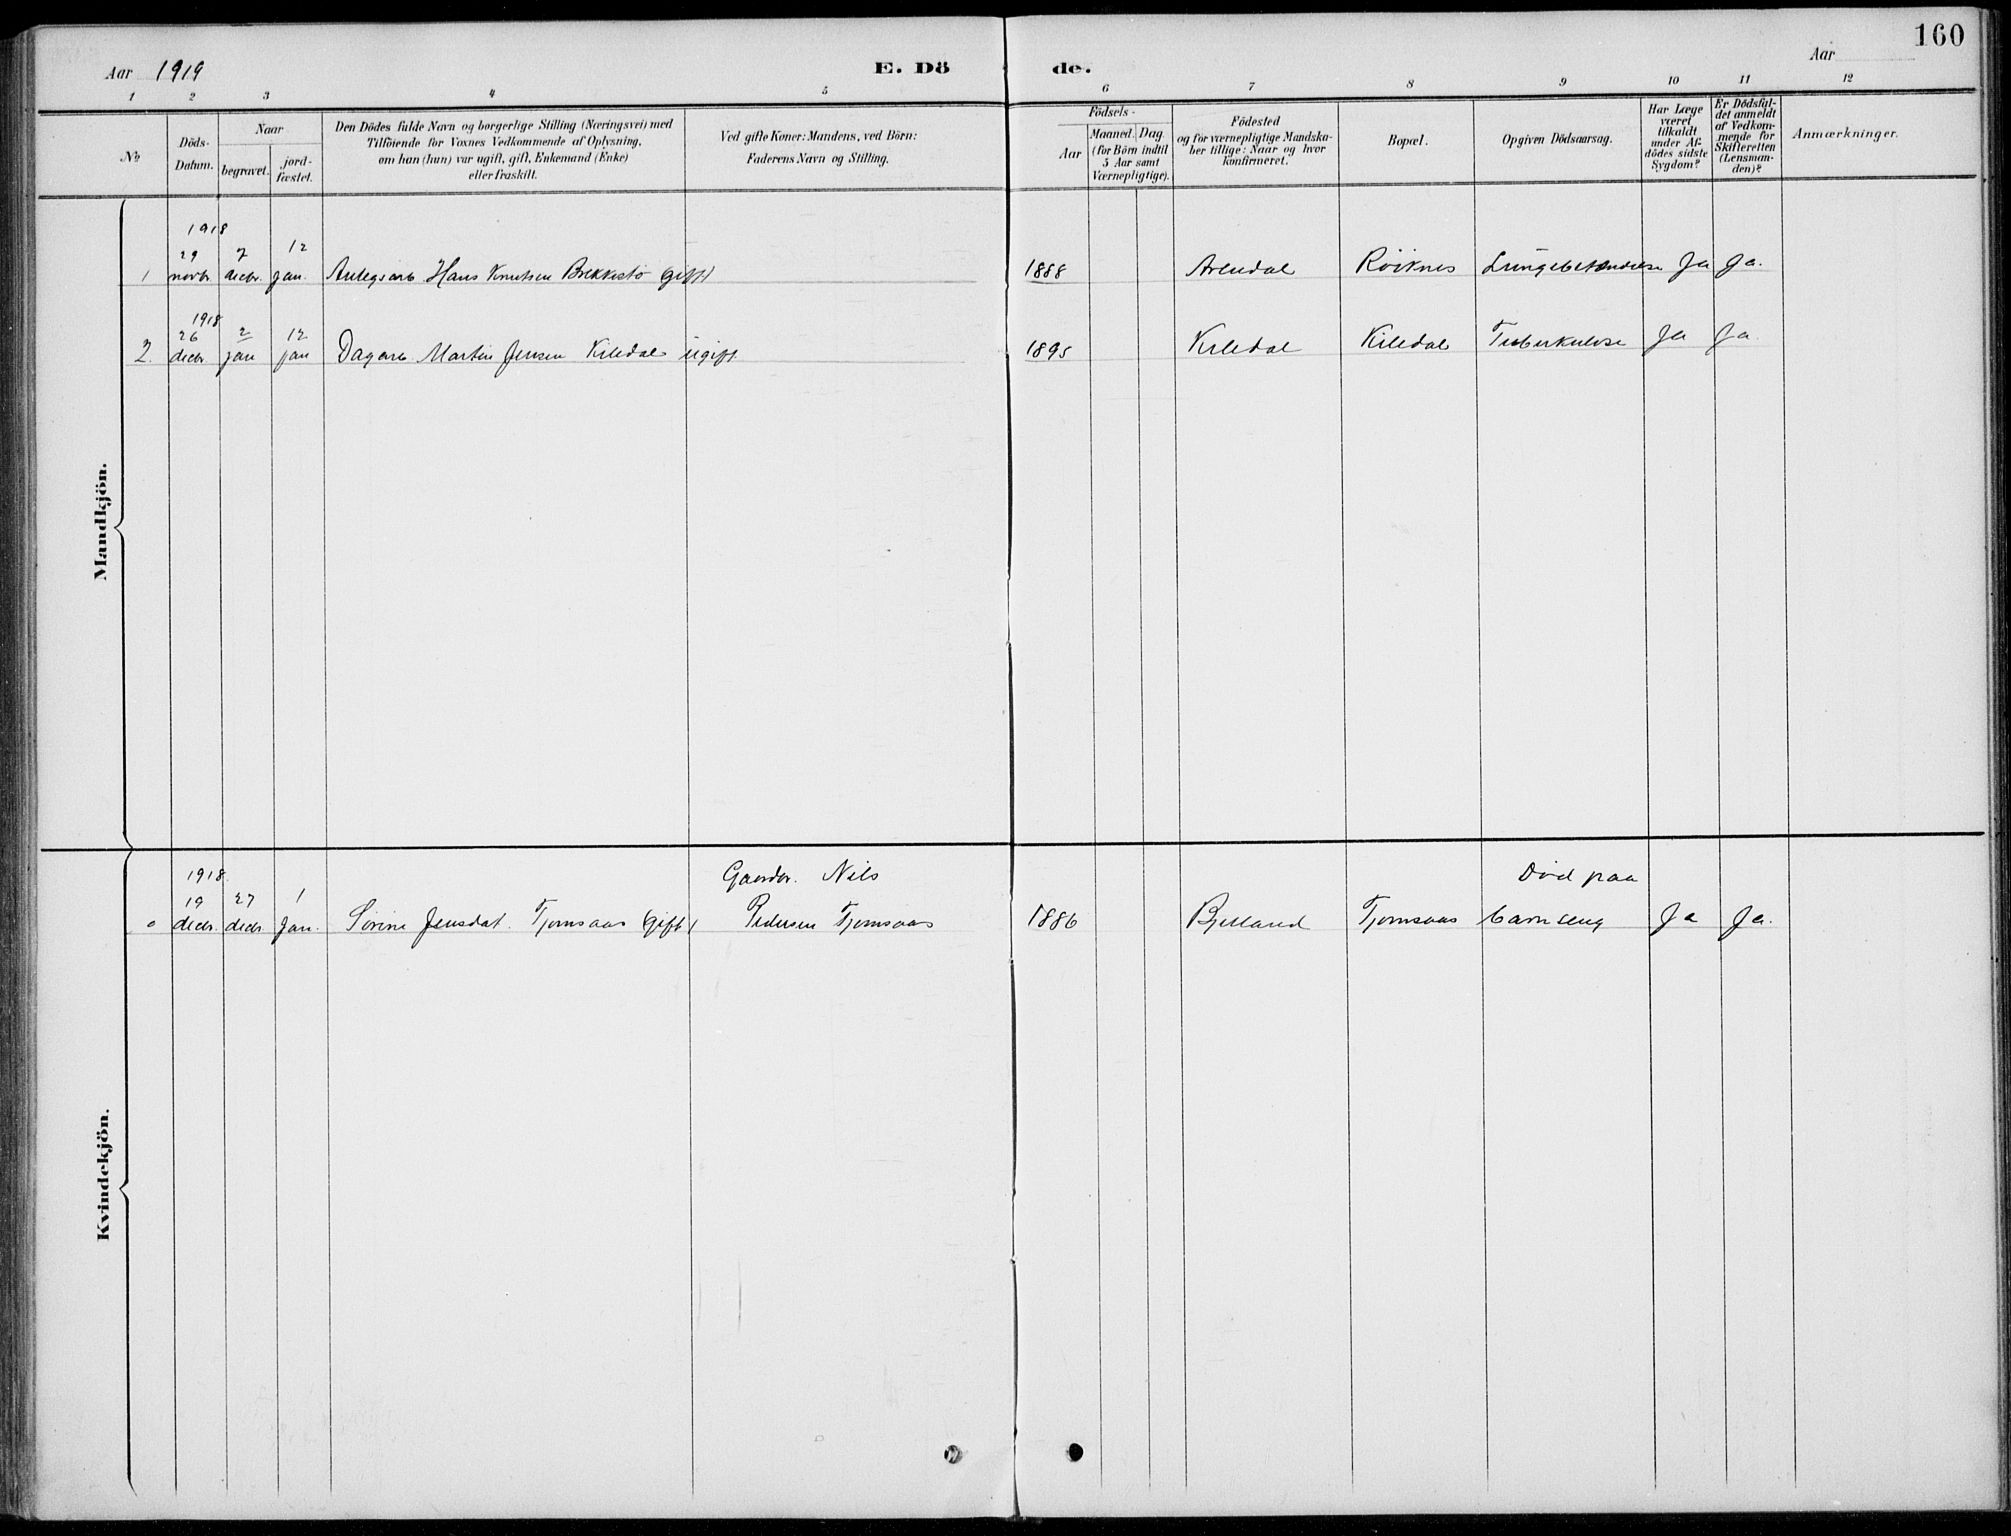 160
Aar 1919 E. Dö de. Aar
1 2 3 4 5 6 7 8 9 10 11 12
No
Döds-Datum.
Naar
begravet.
jord-fæstet.
Den Dödes fulde Navn og borgerlige Stilling (Næringsvei) med
Tilföiende for Voxnes Vedkommende af Oplysning,
om han (hun) var ugift, gift, Enkemand (Enke)
eller fraskilt.
Ved gifte Koner: Mandens, ved Börn:
Faderens Navn og Stilling.
Födsels-
Aar
Maaned. Dag.
(for Börn indtil
5 Aar samt
Værnepligtige).
Födested
og for værnepligtige Mandska-
ber tillige: Naar og hvor
konfirmeret.
Bopæl.
Opgiven Dödsaarsag.
Har Læge
været
tilkaldt
under Af-
dödes sidste
Sygdom?
Er Dödsfal-
det anmeldt
af Vedkom-
mende for
Skifteretten
(Lensman-
den)?
Anmærkninger.
Mandkjön.
1918
29 7 12
1 novbr. decbr. jan. Anlegsarb Hans Knutsen Brekkestö (gift) 1888 Arendal Röiknes Lungebetændelse Ja Ja.
1918
26 2 12
2. decbr jan jan Dagarb Martin Jensen Kiledal ugift 1895 Kiledal Kiledal Tuberkulose Ja Ja.
Kvindekjön.
1918. Gaardbr. Nils Död paa
19 27 1
decbr. decbr jan. Sörine Jensdat. Tjomsaas (gift) Pedersen Tjomsaas 1886 Bjelland Tjomsaas barnseng Ja Ja.